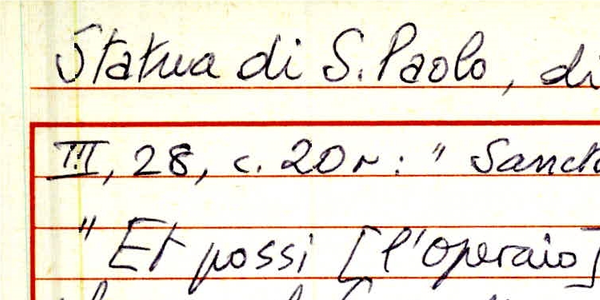 Statua di S. Paolo, di
III, 28, c. 20r: " Sancto
" Et possi [l'operaio]